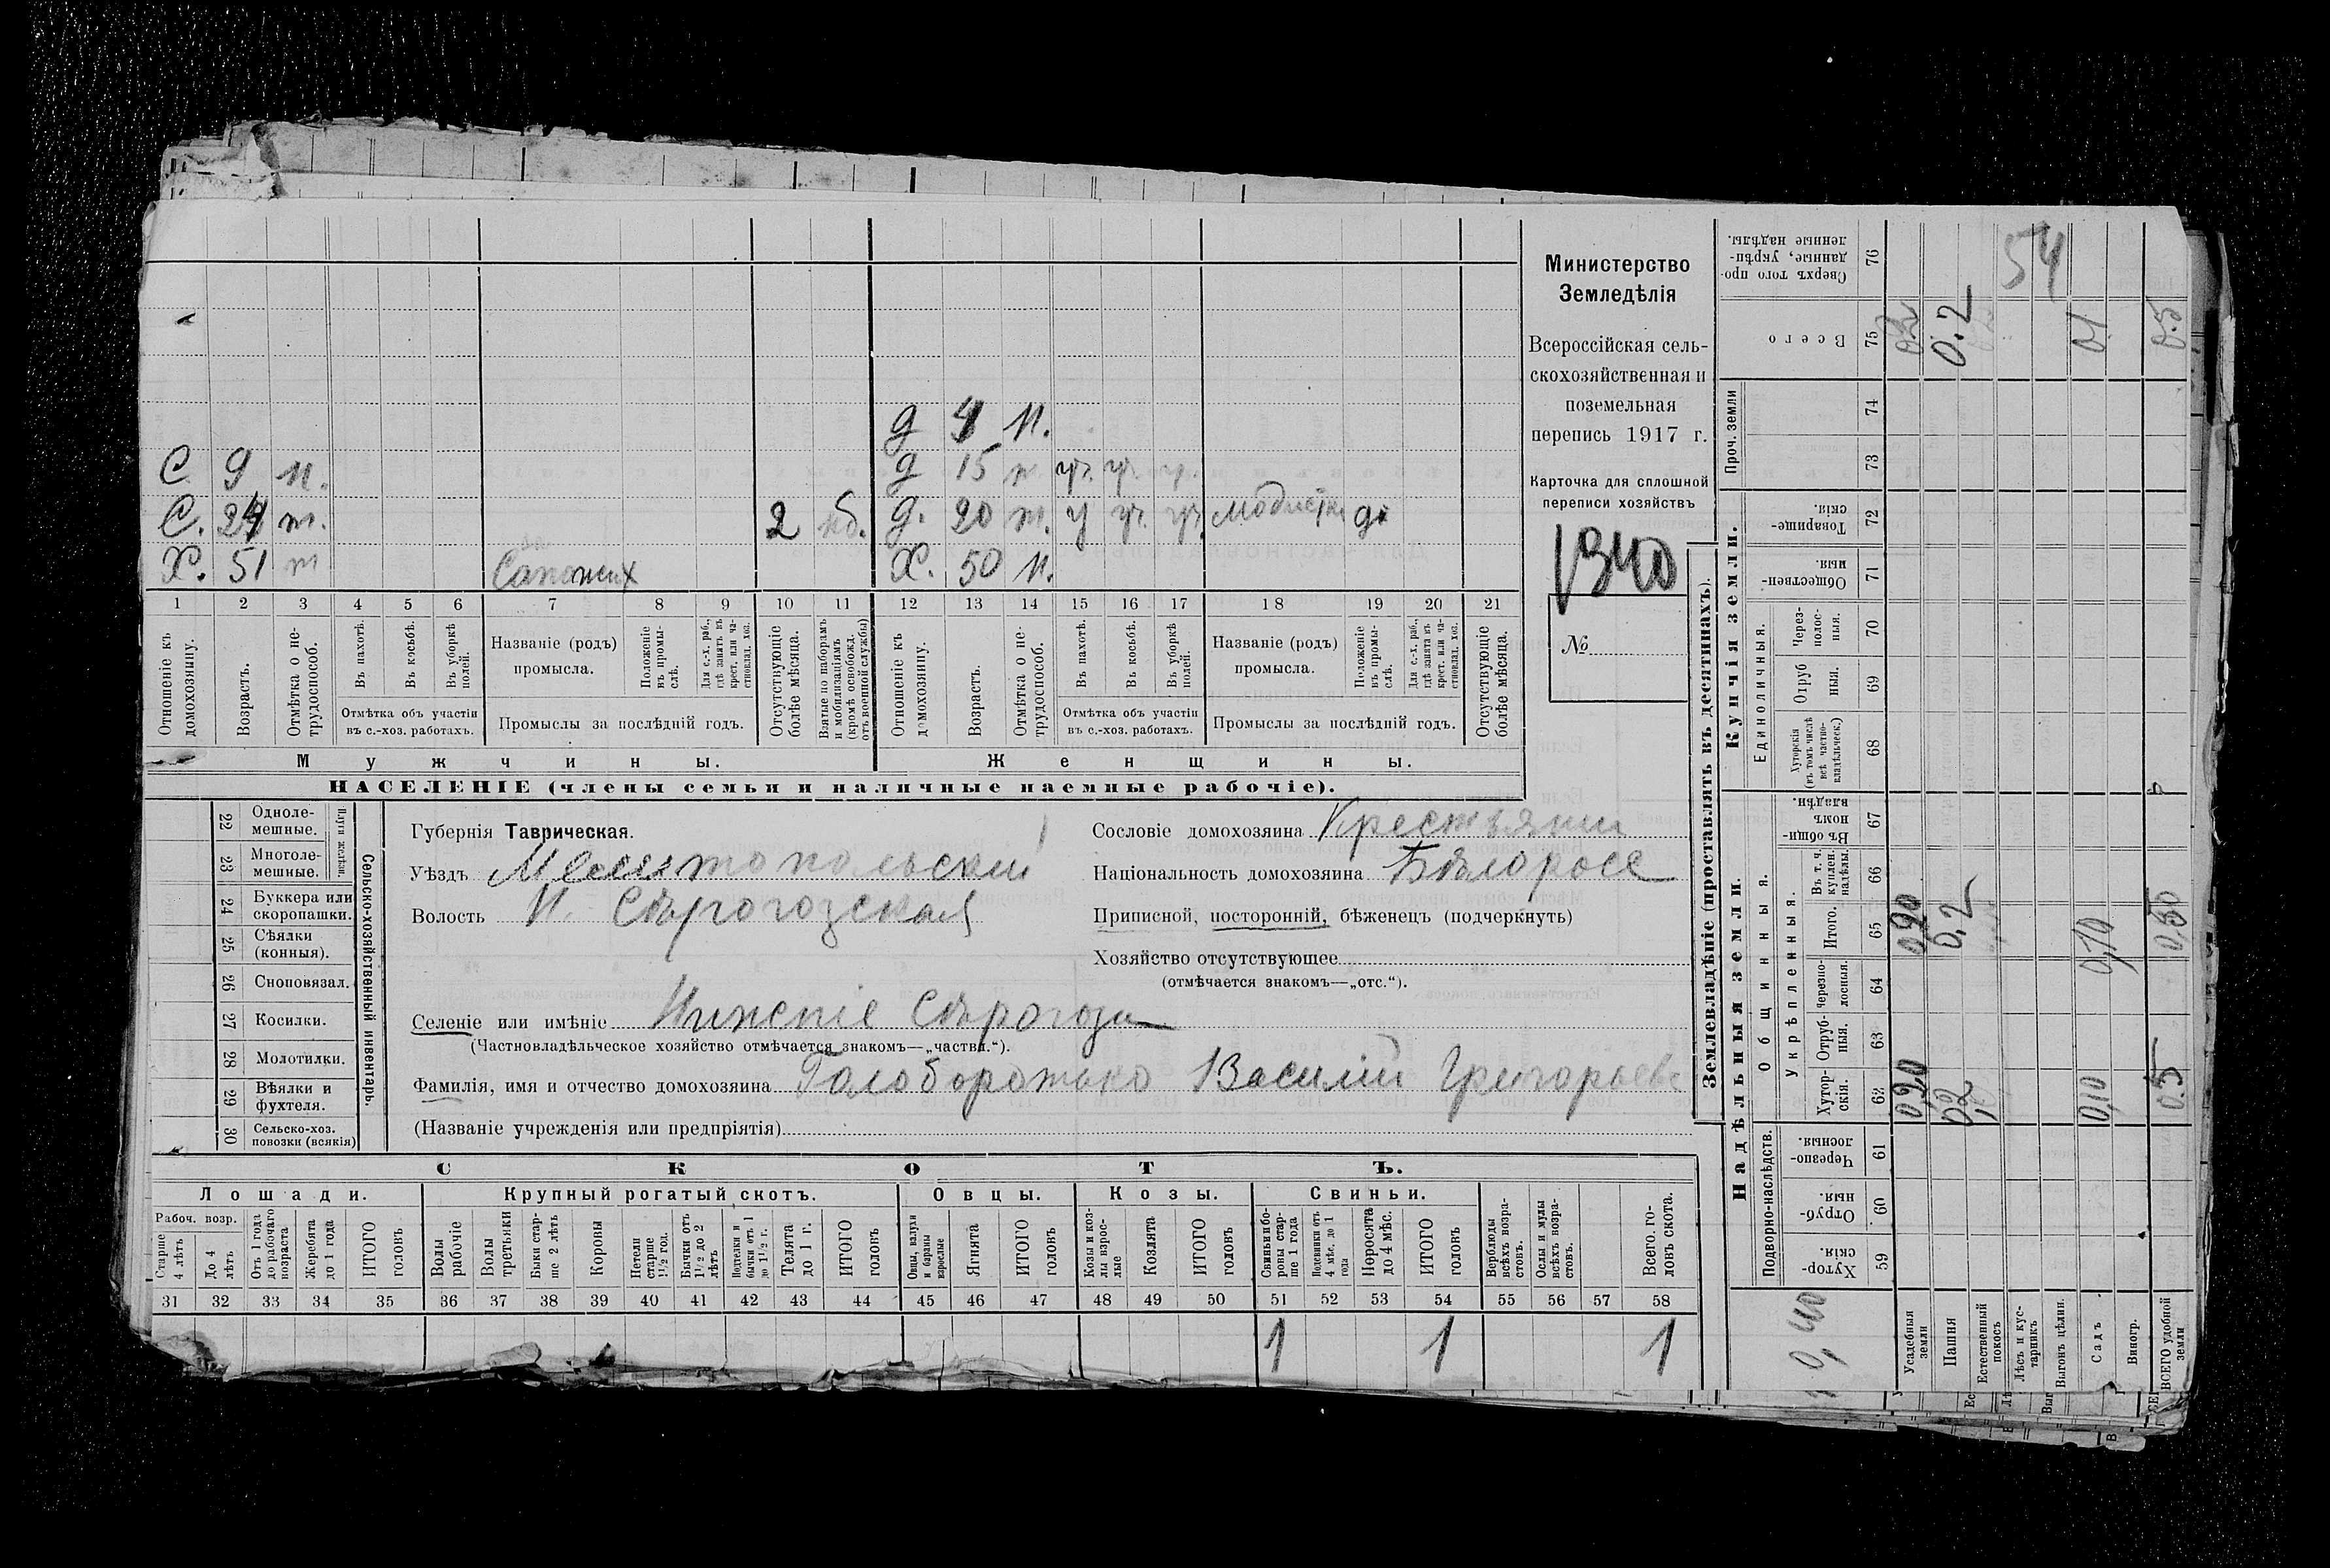 Министерство
Земледѣлія
Всероссійская сель-
скохозяйственная и
поземельная
перепись 1917 г.
Карточка для сплошной
переписи хозяйствъ
1340
№
д 4 н.
С 9 н. д 15 п уч. уч. уч.
С. 24 п. 2 нб. д. 20 п. у уч. уч. модистка
Х. 51 п Сапожн Х. 50 н.
1 2 3 4 5 6 7 8 9 10 11 12 13 14 15 16 17 18 19 20 21
Отношеніе къ домохозяину.
Возрастъ.
Отмѣтка о не-трудоспособ.
Въ пахотѣ.
Въ косьбѣ.
Въ уборкѣ полей.
Отмѣтка объ участіи въ с.-хоз. работахъ.
Названіе (родъ) промысла.
Положеніе въ промы-слѣ.
Для с.-х. раб., гдѣ занятъ въ крест. или ча-стновлад. хоз.
Промыслы за послѣдній годъ.
Отсутствующіе болѣе мѣсяца.
Взятые по наборамъ и мобилизаціямъ (кромѣ освобожд. отъ военной службы)
Отношеніе къ домохозяину.
Возрастъ.
Отмѣтка о не-трудоспособ.
Въ пахотѣ.
Въ косьбѣ.
Въ уборкѣ полей.
Отмѣтка объ участіи въ с.-хоз. работахъ.
Названіе (родъ) промысла.
Положеніе въ промы-слѣ.
Для с.-х. раб., гдѣ занята въ крест. или ча-стновлад. хоз.
Промыслы за послѣдній годъ.
Отсутствующіе болѣе мѣсяца.
Мужчины. Женщины.
НАСЕЛЕНІЕ (члены семьи и наличные наемные рабочіе).
22 Одноле-мешные.
23 Многоле-мешные.
Плуги желѣзн.
24 Буккера или скоропашки.
25 Сѣялки (конныя).
26 Сноповязал.
27 Косилки.
28 Молотилки.
29 Вѣялки и фухтеля.
30 Сельско-хоз. повозки (всякія)
Сельско-хозяйственный инвентарь.
Губернія Таврическая.
Уѣздъ Мелитопольскій
Волость Н. Сѣрогозская
Сословіе домохозяина Крестьянин
Національность домохозяина Бѣлоросс
Приписной, посторонній, бѣженецъ (подчеркнуть)
Хозяйство отсутствующее
(отмѣчается знакомъ—„отс.“).
Селеніе или имѣніе Нижніе Сѣрогозы
(Частновладѣльческое хозяйство отмѣчается знакомъ—„частвл.“).
Фамилія, имя и отчество домохозяина Голобородько Василій Григорьевъ
(Названіе учрежденія или предпріятія)
СКОТЪ.
Лошади. Крупный рогатый скотъ. Овцы. Козы. Свиньи.
Рабоч. возр.
Старше 4 лѣтъ
До 4 лѣтъ
Отъ 1 года до рабочаго возраста
Жеребята до 1 года
ИТОГО головъ
Волы рабочіе
Волы третьяки
Быки стар-ше 2 лѣтъ
Коровы
Нетели старше 1½ год.
Бычки отъ 1½ до 2 лѣтъ
Подтелки и бычки отъ 1 до 1½ г.
Телята до 1 г.
ИТОГО головъ
Овцы, валухи и бараны взрослые
Ягнята
ИТОГО головъ
Козы и коз-лы взрос-лые
Козлята
ИТОГО головъ
Свиньи и бо-ровы стар-ше 1 года
Подсвинки отъ 4 мѣс. до 1 года
Поросята до 4 мѣс.
ИТОГО головъ
Верблюды всѣхъ возра-стовъ.
Ослы и мулы всѣхъ возра-стовъ.
Всего. го-ловъ скота.
31 32 33 34 35 36 37 38 39 40 41 42 43 44 45 46 47 48 49 50 51 52 53 54 55 56 57 58
1 1 1
Землевладѣніе (проставлять въ десятинахъ).
54
Сверхъ того про-данные, укрѣп-ленные надѣлы. 76
Всего 75 0.2 0.1 0.5
Проч. земли 74 73
Купчія земли.
Товарище-скія. 72
Обществен-ныя. 71
Единоличныя.
Через-полос-ныя. 70
Отруб ныя. 69
Хуторскія (въ томъ числѣ всѣ частно-владѣльческ.) 68
Надѣльныя земли.
Общинныя.
Въ общи-номъ владѣн. 67
Укрѣпленныя.
Въ т. ч. куплен. надѣлы. 66
Итого. 65 0,20 0,2 0,10 0,50
Черезпо-лосныя. 64
Отруб-ныя. 63
Хутор-скія. 62 0,20 0,2 0,10 0.5
Подворно-наслѣдств.
Черезпо-лосныя. 61
Отруб-ныя. 60
Хутор-скія. 59
0,40
Усадебныя земли
Пашня
Естественный покосъ
Лѣсъ и кус-тарникъ
Выгонъ цѣлин.
Садъ
Виногр.
ВСЕГО удобной земли